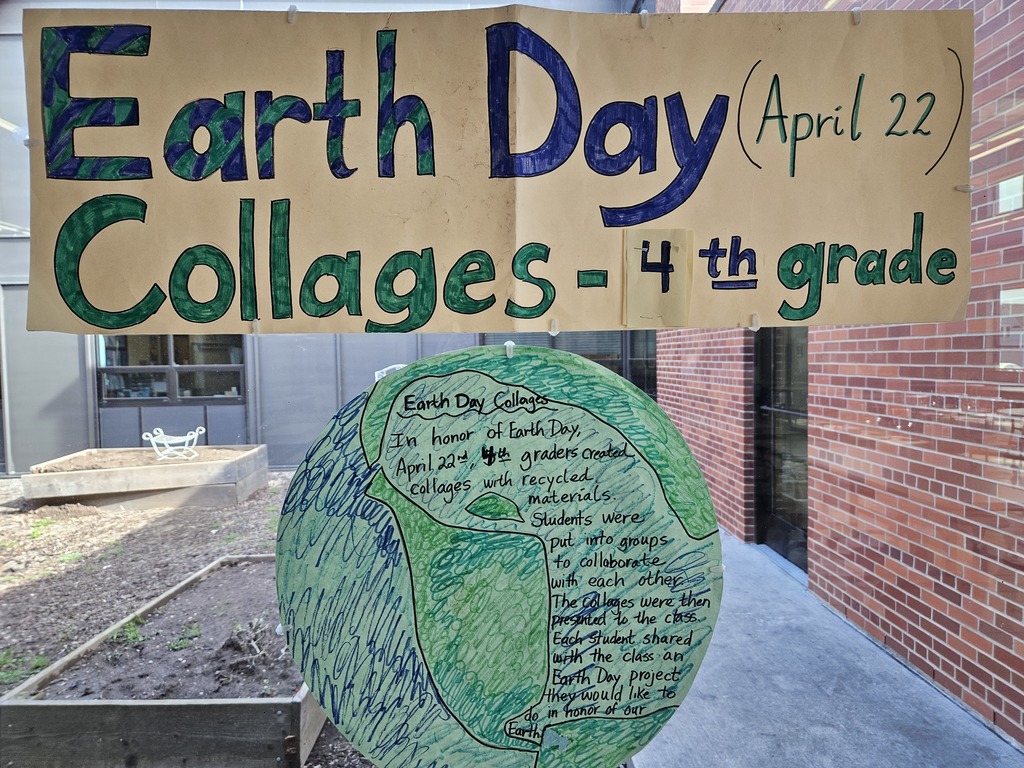 Earth Day (April 22)
Collages - 4th grade
Earth Day Collages
In honor of Earth Day,
April 22nd, 4th graders created
collages with recycled
materials.
Students were
put into groups
to collaborate
with each other.
The collages were then
presented to the class.
Each student shared
with the class an
Earth Day project
they would like to
do in honor of our
Earth.